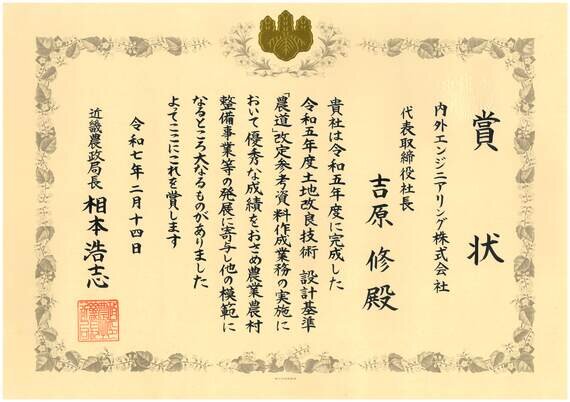 賞状
内外エンジニアリング株式会社
代表取締役社長
吉原修殿
貴社は令和五年度に完成した
令和五年度土地改良技術 設計基準
「農道」改定参考資料作成業務の実施に
おいて優秀な成績をおさめ農業農村
整備事業等の発展に寄与し他の模範に
なるところ大なるものがありました
よってここにこれを賞します
令和七年二月十四日
近畿農政局長 相本浩志